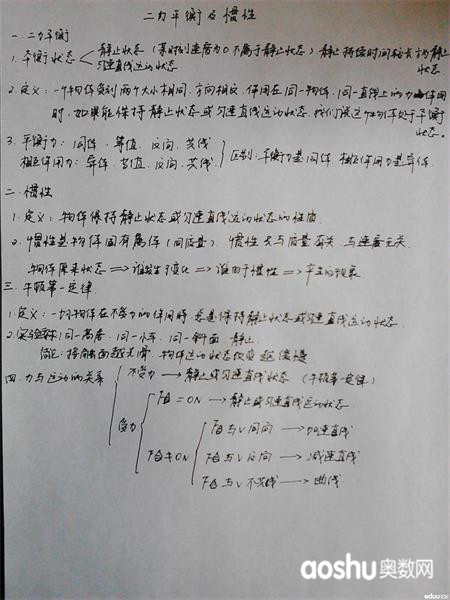 二力平衡及惯性
一.二力平衡
1.平衡状态 静止状态(某时刻速度为0不属于静止状态) 静止持续时间较长方为静止状态.
匀速直线运动状态
2.定义:一个物体受到两个大小相同,方向相反,作用在同一物体,同一直线上的力作用
时,如果能保持静止状态或匀速直线运动状态.我们说这个物体处于平衡
状态.
3.平衡力:同体.等值.反向.共线
相互作用力:异体.等值.反向.共线
区别:平衡力是同体.相互作用力是异体.
二.惯性
1.定义:物体保持静止状态或匀速直线运动状态的性质
2.惯性是物体固有属性(同质量) 惯性大与质量有关.与速度无关.
物体原来状态⇒谁发生了变化⇒谁由于惯性⇒产生的现象
三.牛顿第一定律
1.定义:一切物体在不受力的作用时.总是保持静止状态或匀速直线运动状态.
2.实验 同一高度.同一小车.同一斜面.静止.
结论:接触面越光滑.物体运动状态改变越缓慢
四.力与运动的关系
不受力→静止或匀速直线状态(牛顿第一定律)
受力
F合=0N→静止或匀速直线运动状态.
F合≠0N
F合与V同向→加速直线
F合与V反向→减速直线
F合与V不共线→曲线
aoshu奥数网